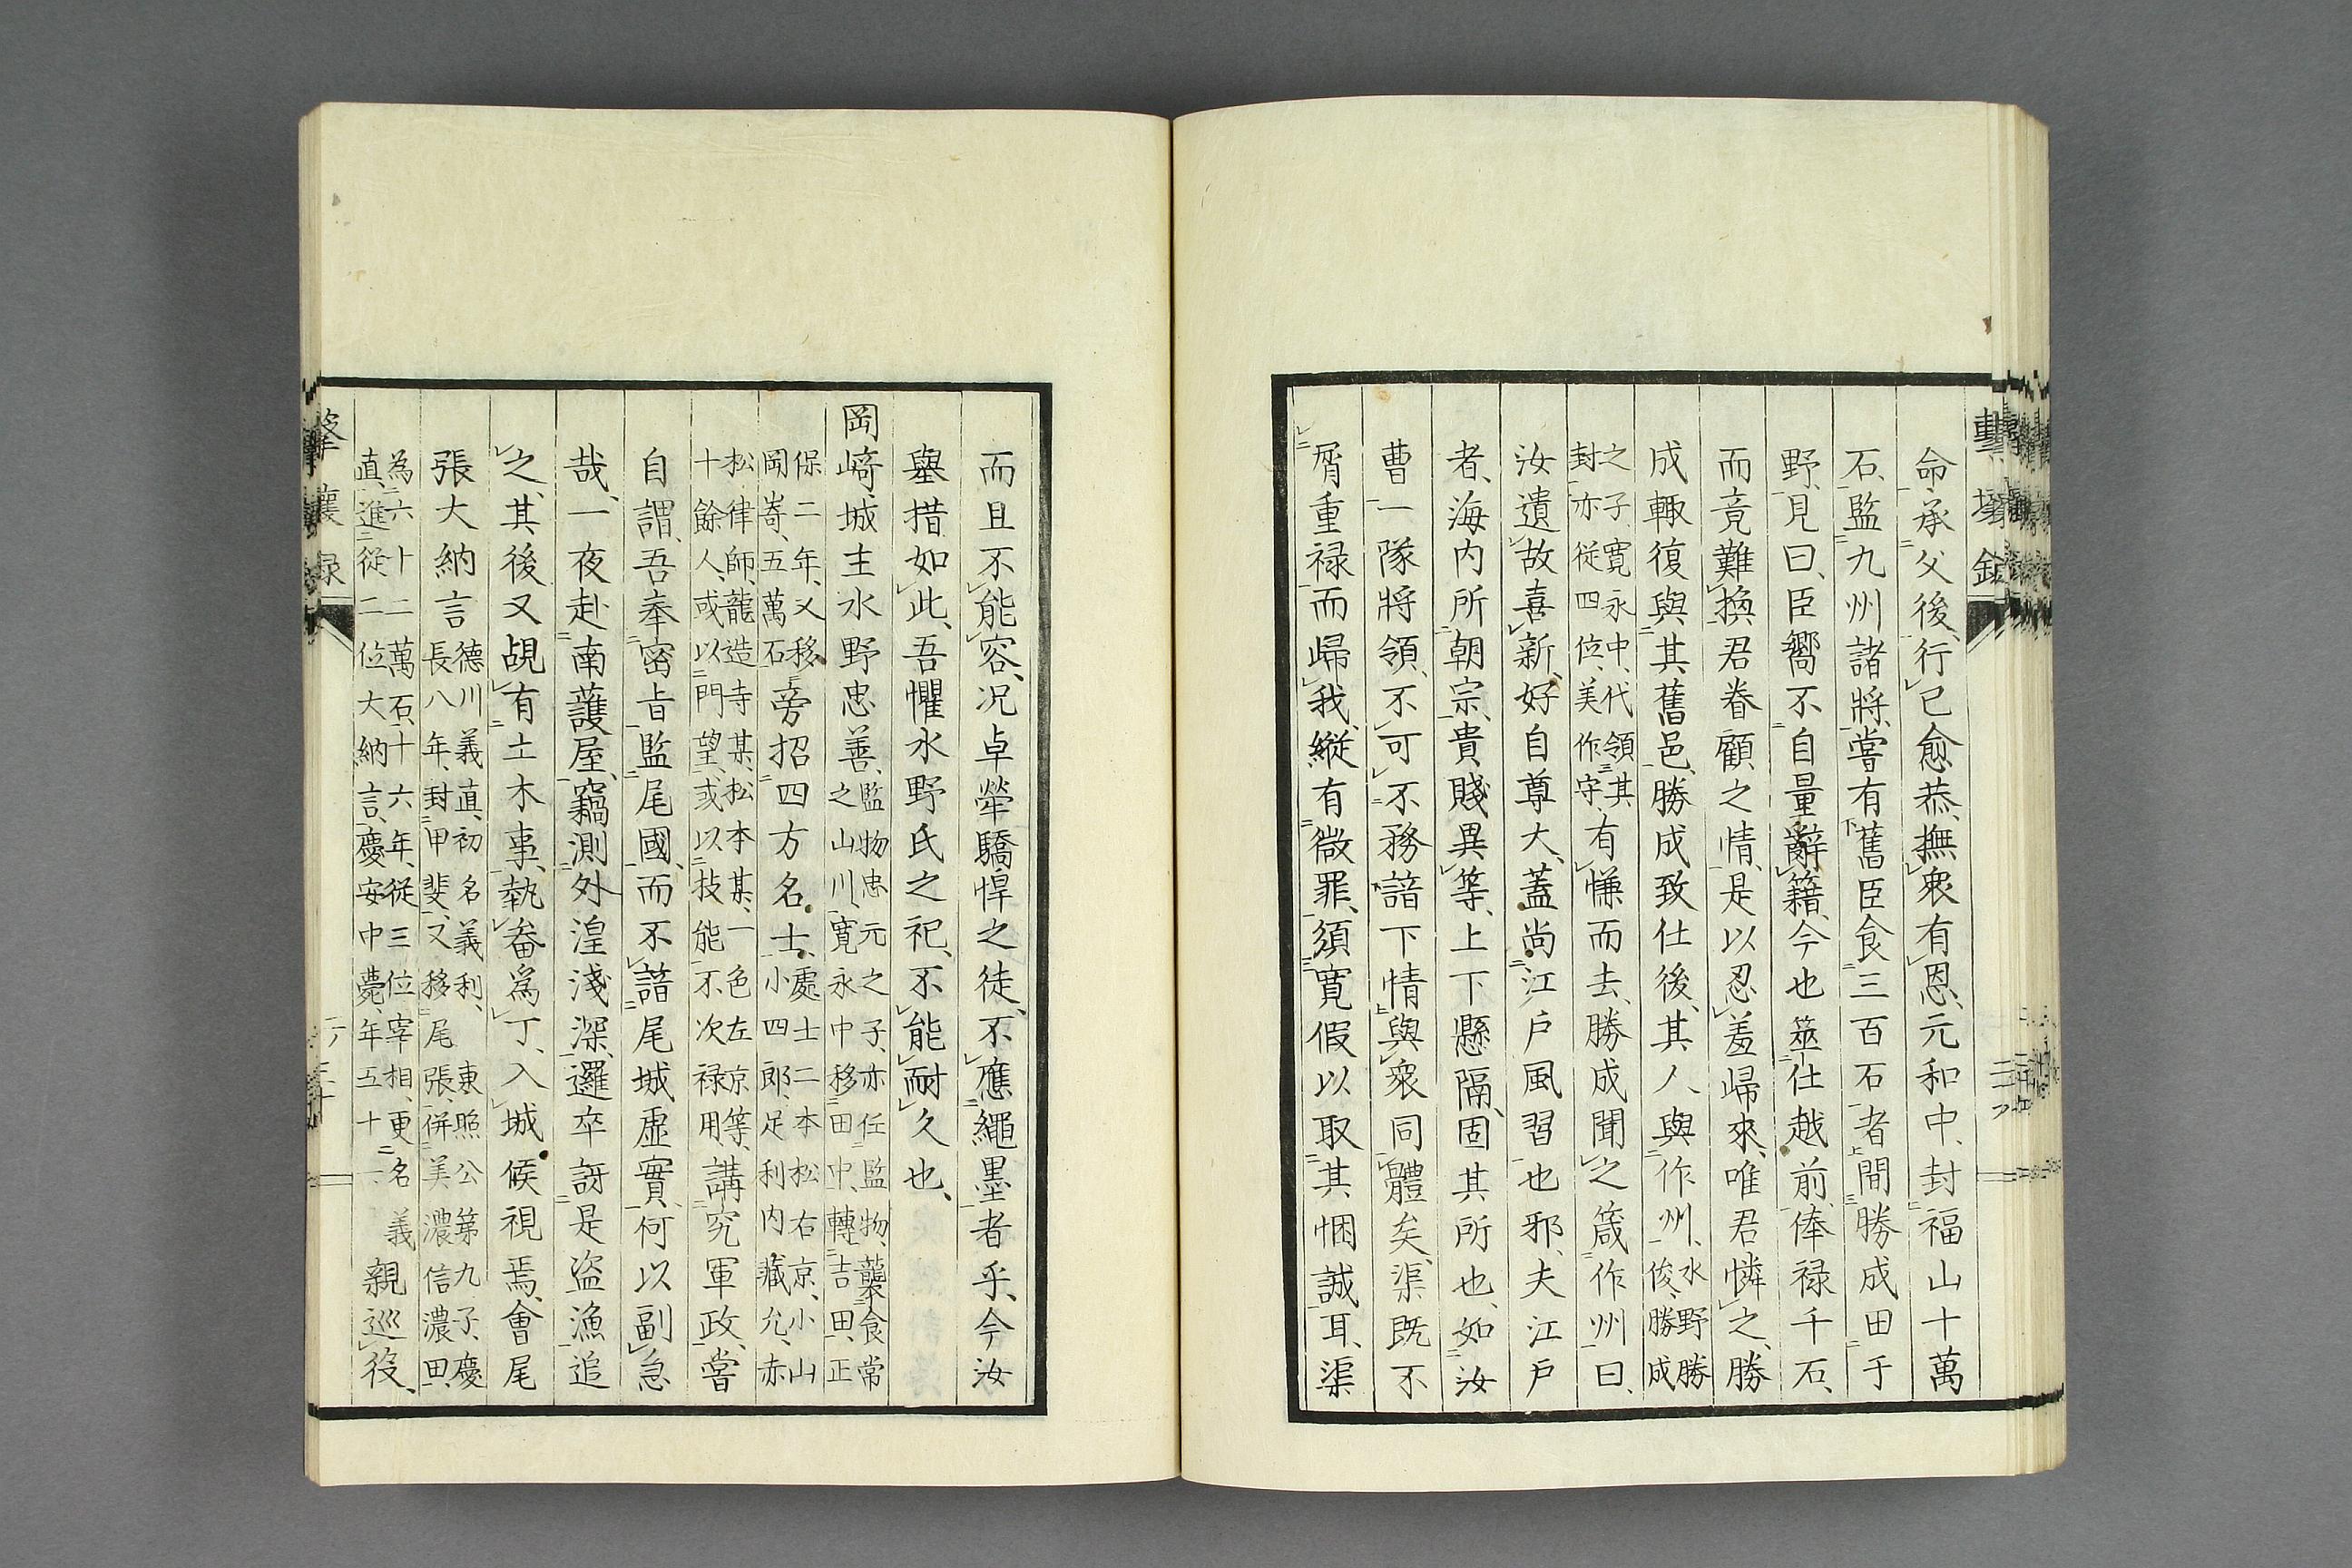 命承父後行已愈恭撫衆有恩元和中封福山十萬
石監九州諸將嘗有舊臣食三百石者間勝成田于
野見曰臣嚮不自量辭籍今也筮仕越前俸禄千石
而竟難換君眷顧之情是以忍羞歸來唯君憐之勝
成輙復與其舊邑勝成致仕後其人與作州水野勝俊勝成
之子寛永中代領其封亦従四位美作守有慊而去勝成聞之箴作州曰
汝遺故喜新好自尊大蓋尚江戸風習也邪夫江戸
者海内所朝宗貴賤異等上下懸隔固其所也如汝
曹一隊將領不可不務諳下情與衆同體矣渠既不
屑重禄而歸我縦有微罪須寛假以取其悃誠耳渠
而且不能容况卓犖驕悍之徒不應繩墨者乎今汝
擧措如此吾懼水野氏之祀不能耐久也
岡﨑城主水野忠善監物忠元之子亦任監物襲食常之山川寛永中移田中轉吉田正
保二年又移岡嵜五萬石旁招四方名士處士二本松右京小山小四郎足利内藏允赤
松律師龍造寺某松本某一色左京等十餘人或以門望或以技能不次禄用講究軍政嘗
自謂吾奉密旨監尾國而不諳尾城虛實何以副急
哉一夜赴南護屋竊測外湟淺深邏卒訝是盗漁追
之其後又覘有土木事執畚爲丁入城候視焉會尾
張大納言德川義直初名義利東照公第九子慶長八年封甲斐又移尾張併美濃信濃田
為六十二萬石十六年従三位宰相更名義直進従二位大納言慶安中薨年五十一親巡役